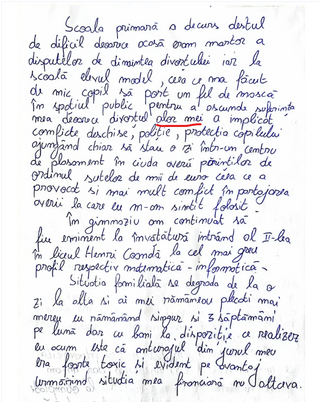 Scoala primară a decurs destul
de dificil deoarece acasă eram martor a
disputelor de dimintea divortului iar la
scoală elevul model, ceea ce ma făcut
de mic copil să port un fel de mască
în spațiul public pentru a ascunde suferința
mea deoarece divortul alor mei a implicat
conflicte deschise, poliție, protectia copilului
ajungând chiar să stau o zi într-un centru
de plasament în ciuda averii părintilor de
ordinul sutelor de mii de euro ceea ce a
provocat si mai mult conflict în partajarea
averii la care eu m-am simtit folosit.
În gimnaziu am continuat să
fiu eminent la învatătură intrând al II-lea
în liceul Henri Coandă la cel mai greu
profil respectiv matematică - informatică.
Situatia familială se degrada de la o
zi la alta si ai mei rămâneau plecati mai
mereu eu rămânând singur si 3 săptămâni
pe lună dar cu bani la dispozitie ce realizez
eu acum este că anturajul din jurul meu
era foarte toxic si evident pe avantaj
urmărind situatia mea financiară nu altceva.